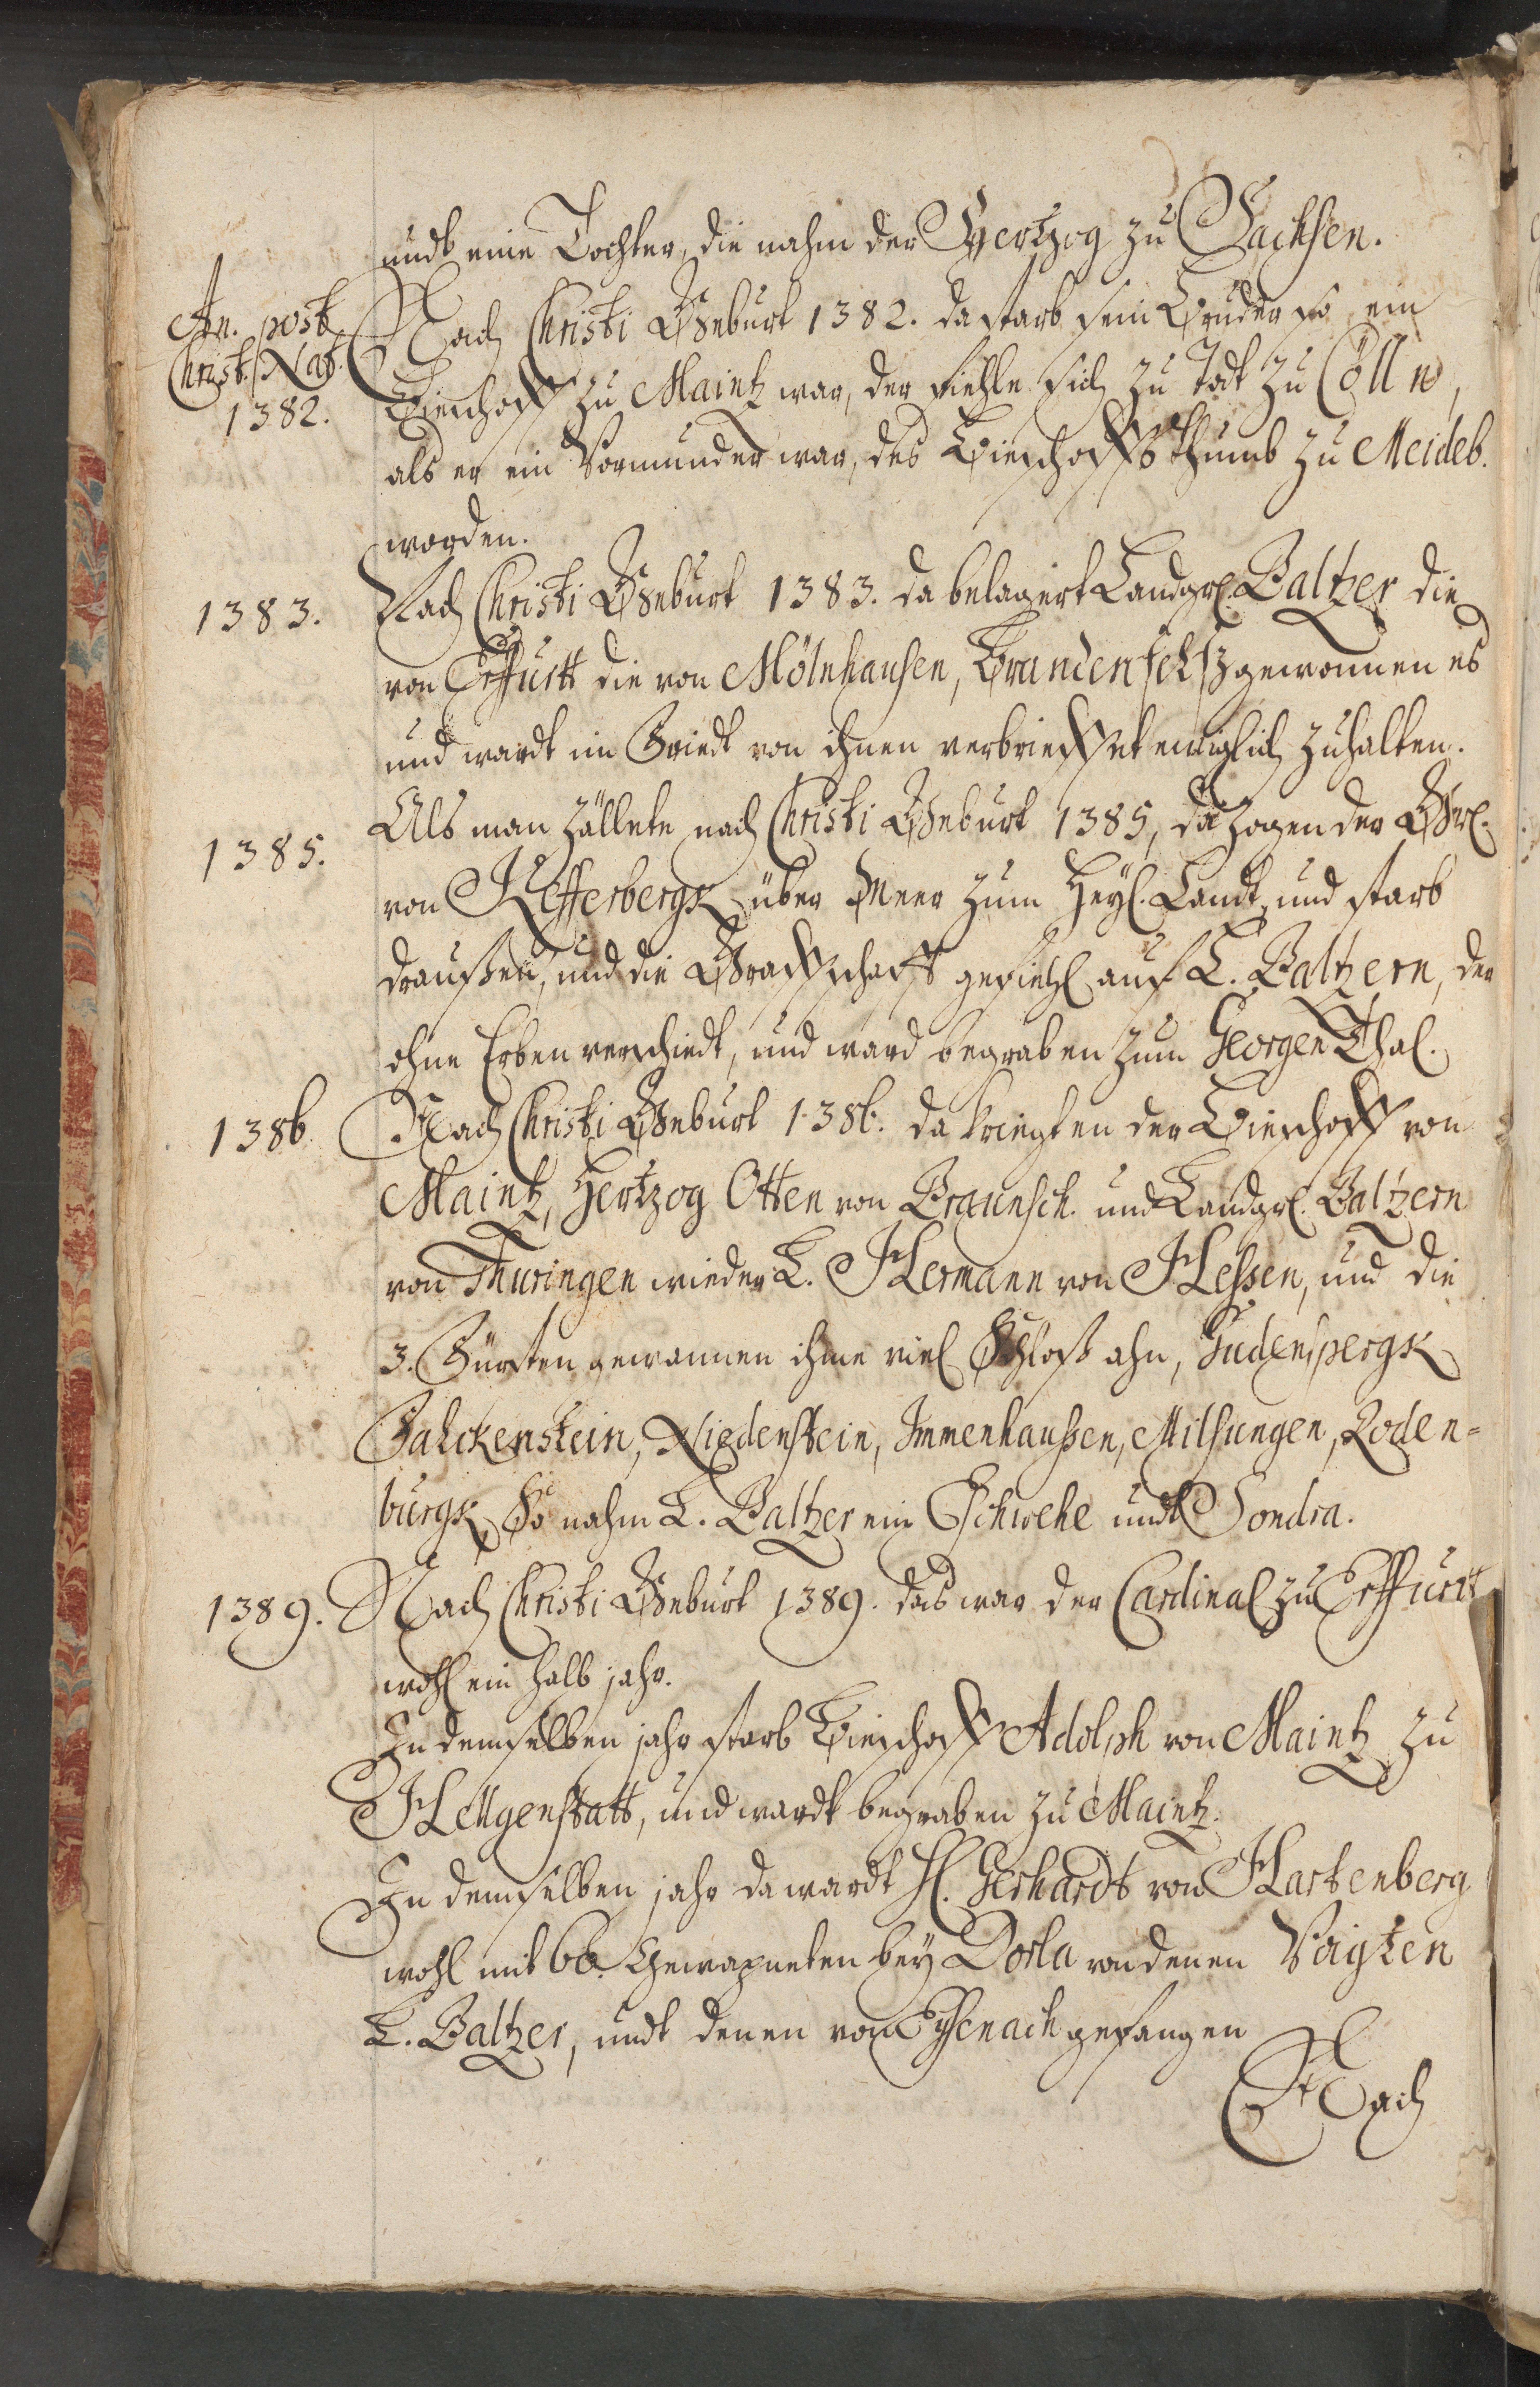 undt eine Tochter, die nahm der Hertzog zu Sachsen.
An. post
Christ. Nat.
1382.
Nach Christi Geburt 1382. da starb sein Bruder so ein
Bieschoff zu Maintz war, der fiehle sich zu Todt zu Cölln,
als er ein Vormunder war, des Bieschoffsthumb zu Meideb.
worden.
1383.
Nach Christi Geburt 1383. da belagert Landgr. Baltzer die
von Erffurtt die von Mölnhausen, Brandenfelß gewonnen es
und wardt im Griedt von ihnen verbrieffet ewiglich zuhalten.
1385.
Als man zällete nach Christi Geburt 1385, da zogen der Gr.
von Kefferbergk über Meer zum Heyl. Landt, und starb
draußen, und die Graffschafft gefiehl auf L. Baltzern, der
ohne Erben verschiedt, und ward begraben zum Georgen Thal.
1386.
Nach Christi Geburt 1386. da kriegten der Bieschoff von
Maintz, Hertzog Otten von Braunsch. und Landgr. Baltzern
von Thuringen wieder L. Hermann von Heßen, und die
3. Fürsten gewannen ihme viel Schloß ahn, Gudenspergk
Falckenstein, Niedenstein, Immenhaußen, Milsungen, Roden=
burgk, So nahm L. Baltzer ein Eschwehe undt Sondra.
1389.
Nach Christi Geburt 1389. das war der Cardinal zu Erffurtt
wohl ein halb jahr.
In demselben jahr starb Bieschoff Adolph von Maintz zu
Hellgenstatt, und wardt begraben zu Maintz.
In demselben jahr da wardt H. Gerhardt von Hartenberg
wohl mit 66. Gewapneten bey Dorla von denen Voigten
L. Baltzer, undt denen von Eysenach gefangen
Nach